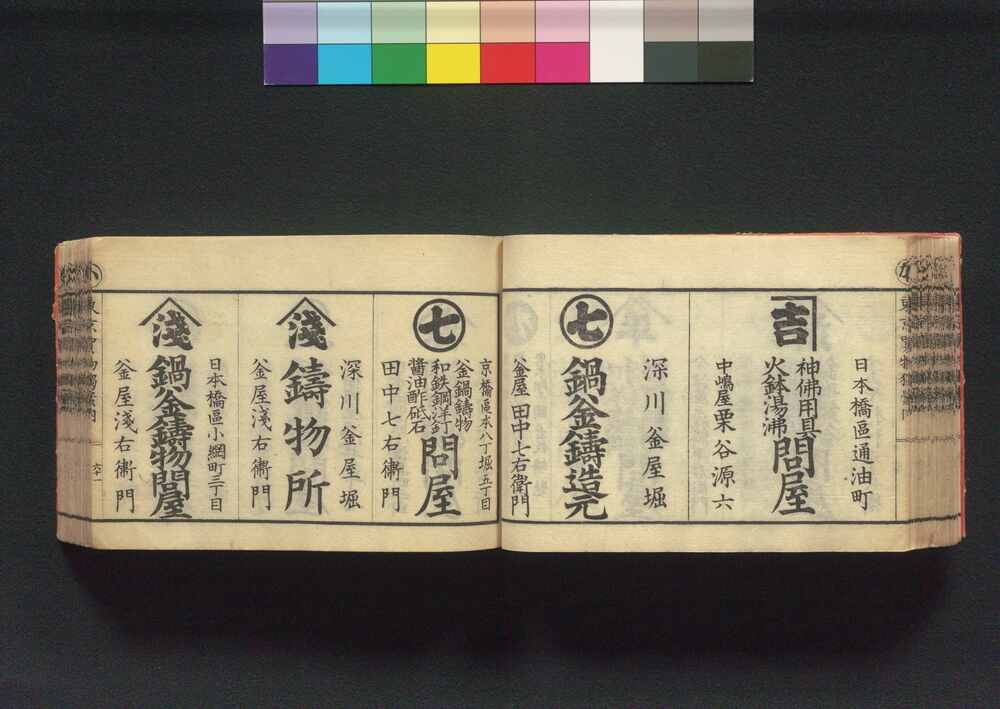 日本橋區通油町
吉
神佛用具
火鉢湯沸
問屋
中嶋屋栗谷源六
深川釜屋堀
七
鍋釜鑄造元
釜屋 田中七右衞門
京橋區本八丁堀五丁目
七
釜鍋鑄物
和鉄鋼洋釘
醬油酢砥石
問屋
田中七右衞門
深川釜屋堀
淺
鑄物所
釜屋淺右衞門
日本橋區小網町三丁目
淺
鍋釜鑄物問屋
釜屋淺右衞門
六十一